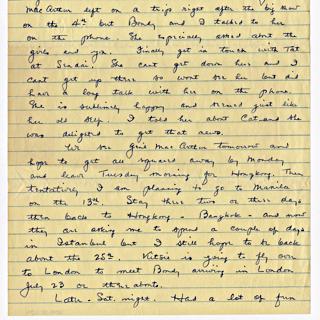 MacArthur left on a trip right after the big show
on the 4th but Bondy and I talked to her
on the phone. She especially asked about the
girls and you. Finally got in touch with Tat
at Sendai. She can't get down here and I
can't get up there so wont see her but did
have a long talk with her on the phone.
She is sublimely happy and seemed just like
her old self. I told her about Cat and she
was delighted to get that news.
We see Gen'l MacArthur tomorrow and
hope to get all squared away by Monday
and leave Tuesday morning for Hongkong. Then
tentatively I am planning to go to Manila
on the 13th. Stay there two or three days
then back to Hongkong - Bangkok - and now
they are asking me to spend a couple of days
in Istanbul but I still hope to be back
about the 25th. is going to fly over
to London to meet Bondy arriving in London
July 23 or thereabouts.
Later - Sat. night. Had a lot of fun